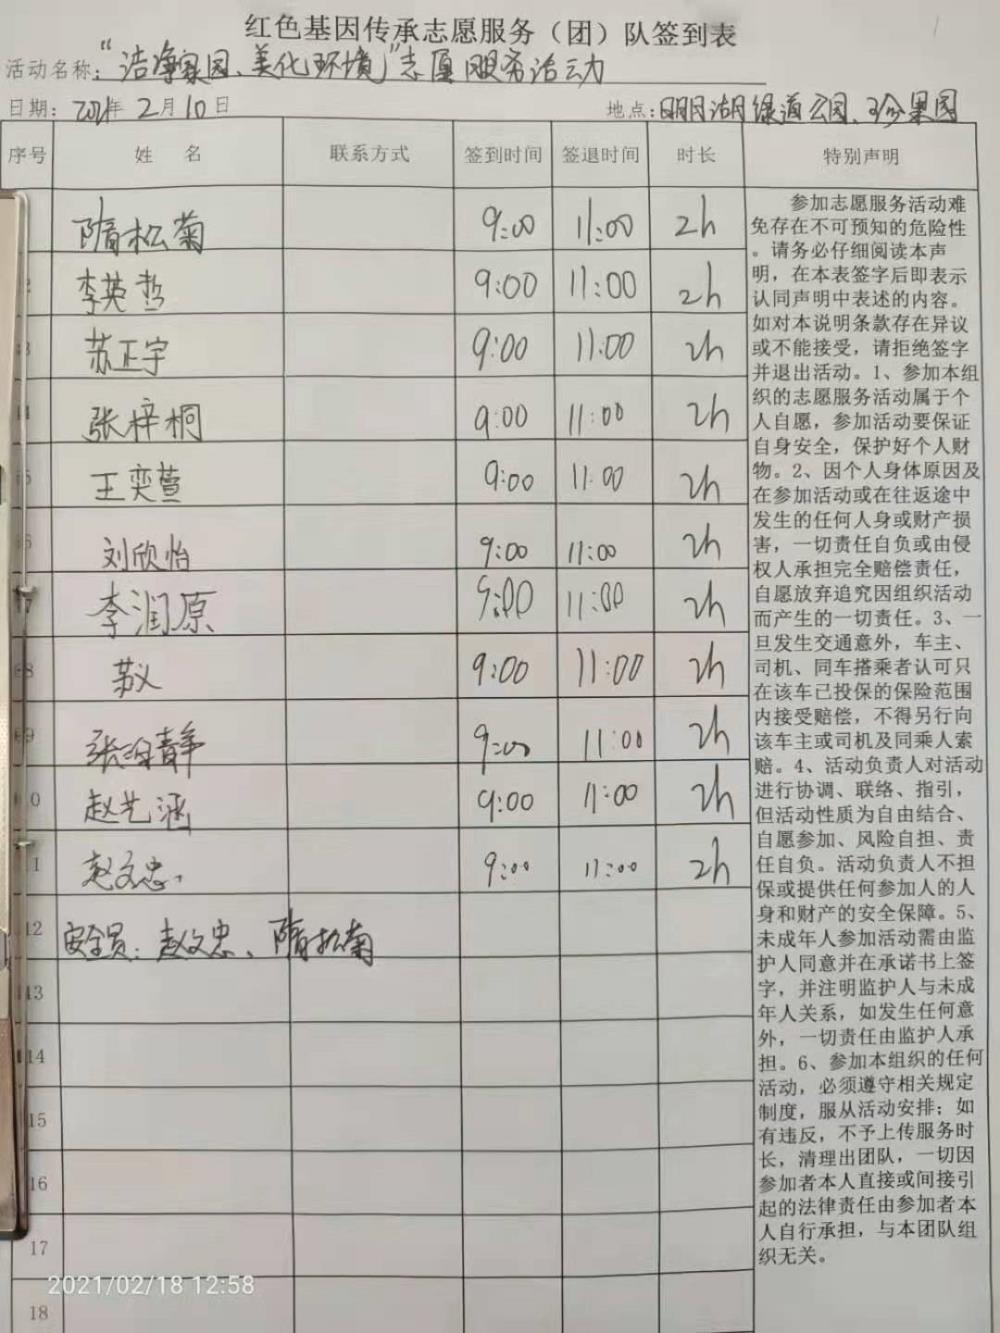 红色基因传承志愿服务（团）队签到表
活动名称：“洁净家园、美化环境”志愿服务活动
日期：2021年2月10日 地点：明月湖绿道公园、珍果园
序号 姓名 联系方式 签到时间 签退时间 时长 特别声明
隋松菊 9:00 11:00 2h
2 李英哲 9:00 11:00 2h
3 苏正宇 9:00 11:00 2h
4 张梓桐 9:00 11:00 2h
5 王奕萱 9:00 11:00 2h
6 刘欣怡 9:00 11:00 2h
7 李润原 9:00 11:00 2h
8 苏义 9:00 11:00 2h
9 张 静 9:00 11:00 2h
0 赵艺涵 9:00 11:00 2h
1 赵文忠. 9:00 11:00 2h
12 安全员：赵文忠、隋松菊
13
14
15
16
17
18
参加志愿服务活动难
免存在不可预知的危险性
。请务必仔细阅读本声
明，在本表签字后即表示
认同声明中表述的内容。
如对本说明条款存在异议
或不能接受，请拒绝签字
并退出活动。1、参加本组
织的志愿服务活动属于个
人自愿，参加活动要保证
自身安全，保护好个人财
物。2、因个人身体原因及
在参加活动或在往返途中
发生的任何人身或财产损
害，一切责任自负或由侵
权人承担完全赔偿责任，
自愿放弃追究因组织活动
而产生的一切责任。3、一
旦发生交通意外，车主、
司机、同车搭乘者认可只
在该车已投保的保险范围
内接受赔偿，不得另行向
该车主或司机及同乘人索
赔。4、活动负责人对活动
进行协调、联络、指引，
但活动性质为自由结合、
自愿参加、风险自担、责
任自负。活动负责人不担
保或提供任何参加人的人
身和财产的安全保障。5、
未成年人参加活动需由监
护人同意并在承诺书上签
字，并注明监护人与未成
年人关系，如发生任何意
外，一切责任由监护人承
担。6、参加本组织的任何
活动，必须遵守相关规定
制度，服从活动安排；如
有违反，不予上传服务时
长，清理出团队，一切因
参加者本人直接或间接引
起的法律责任由参加者本
人自行承担，与本团队组
织无关。
2021/02/18 12:58